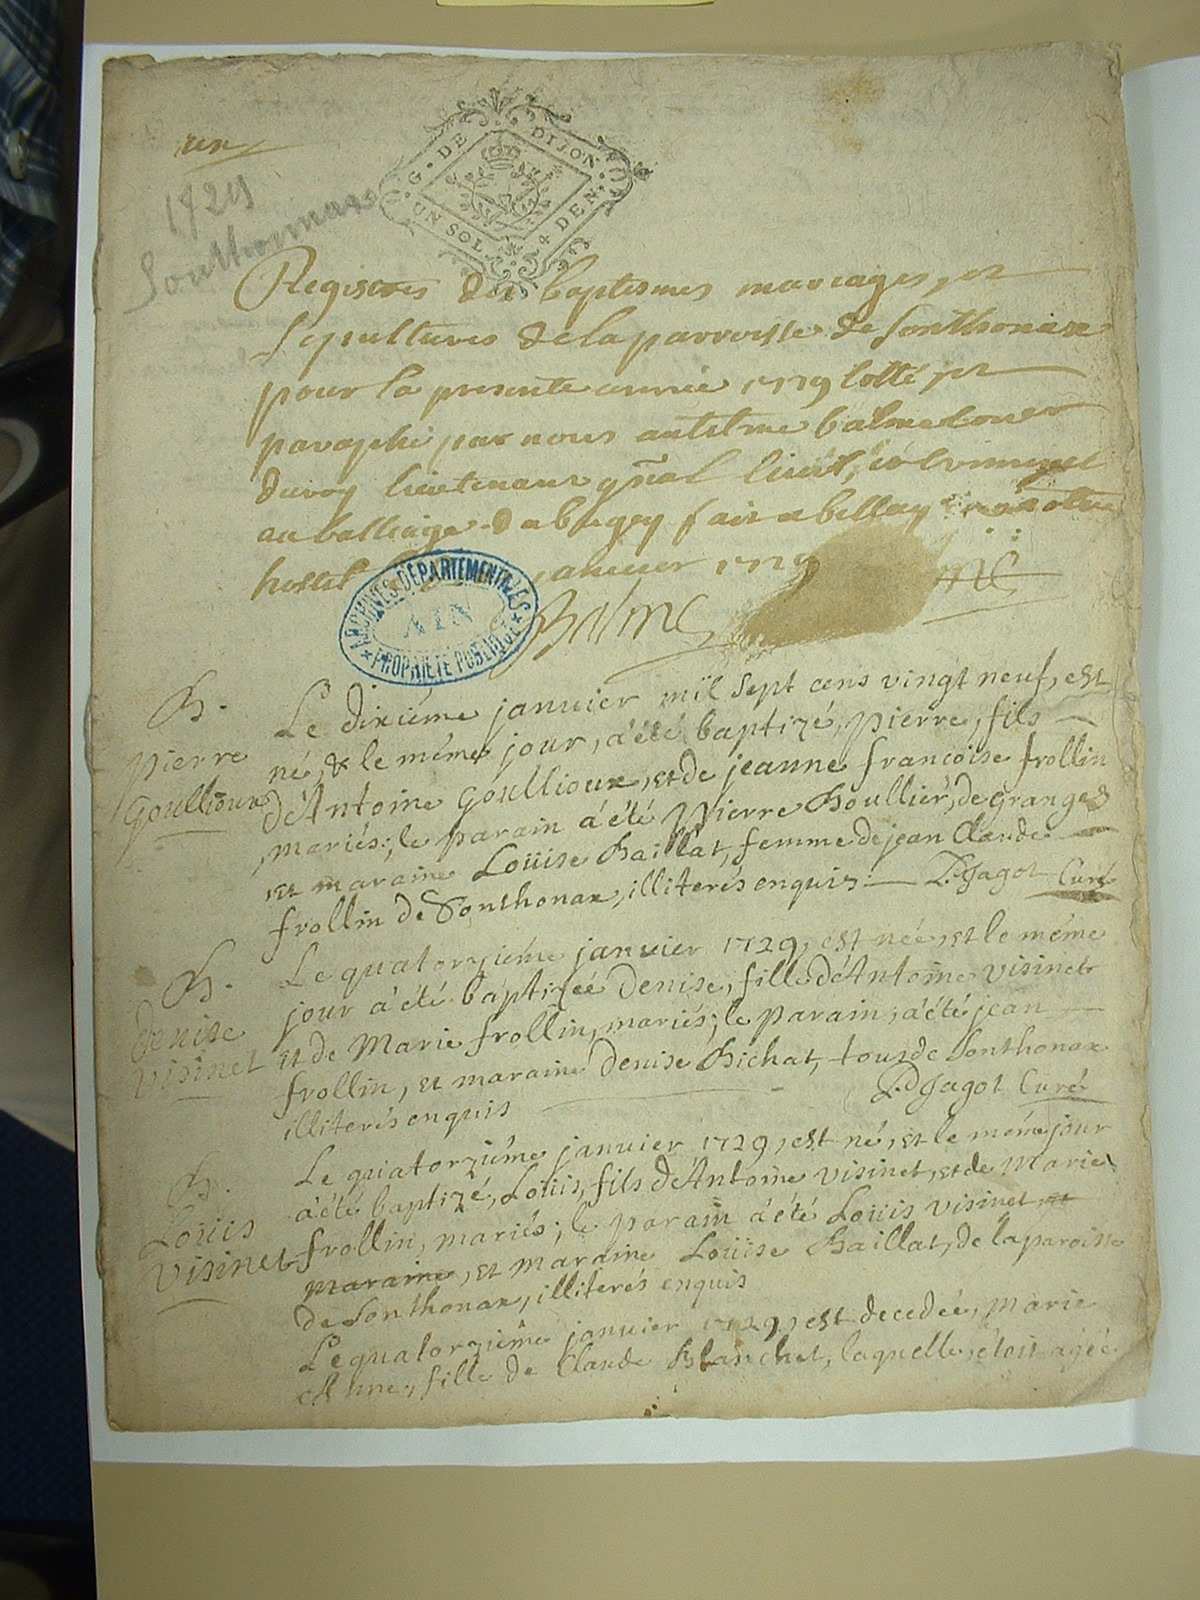 un
1729
Southonnax
G. DE DIJON.
UN SOL 4 DEN.
Registres des baptesmes mariages, et
sepultures de la parroisse de Sonthonax
pour la presente année 1729 cotté et
paraphé par nous antelme balme Coner
du roy lieutenant gñal civil, et criminel
au balliage du bugey fait a belley en notre
hostel janvier 1729
Balme
B.
Pierre
Goullioux
Le dixiéme janvier mil sept cens vingt neuf, est
né, & le même jour, a été baptizé, pierre, fils
d'Antoine Goullioux, et de jeanne francoise frollin
mariés; le parain a été Pierre Boullier, de Granges
et maraine Loüise Baillat, femme de jean Claude
frollin de Sonthonax, illiterés enquis. P. Jagot Curé
B.
Denise
Visinet
Le quatorziéme janvier 1729, est née, et le même
jour a été baptizée Denise, fille d'Antoine Visinet
et de Marie frollin, mariés; le parain, a été jean
frollin, et maraine Denise Bichat, tous de Sonthonax
illiterés enquis P. Jagot Curé
B.
Loüis
Visinet
Le quatorziéme janvier 1729, est né, et le même jour
a été baptizé, Loüis, fils d'Antoine Visinet, et de Marie
frollin, mariés; le parain a été Loüis Visinet, et
maraine, et maraine Loüise Baillat, de la paroisse
de Sonthonax, illiterés enquis
Le quatorziéme janvier 1729, est decedée, Marie
Anne, fille de Claude Blanchet, laquelle étoit agée
ARCHIVES DÉPARTEMENTALES
AIN
PROPRIÉTÉ PUBLIQUE